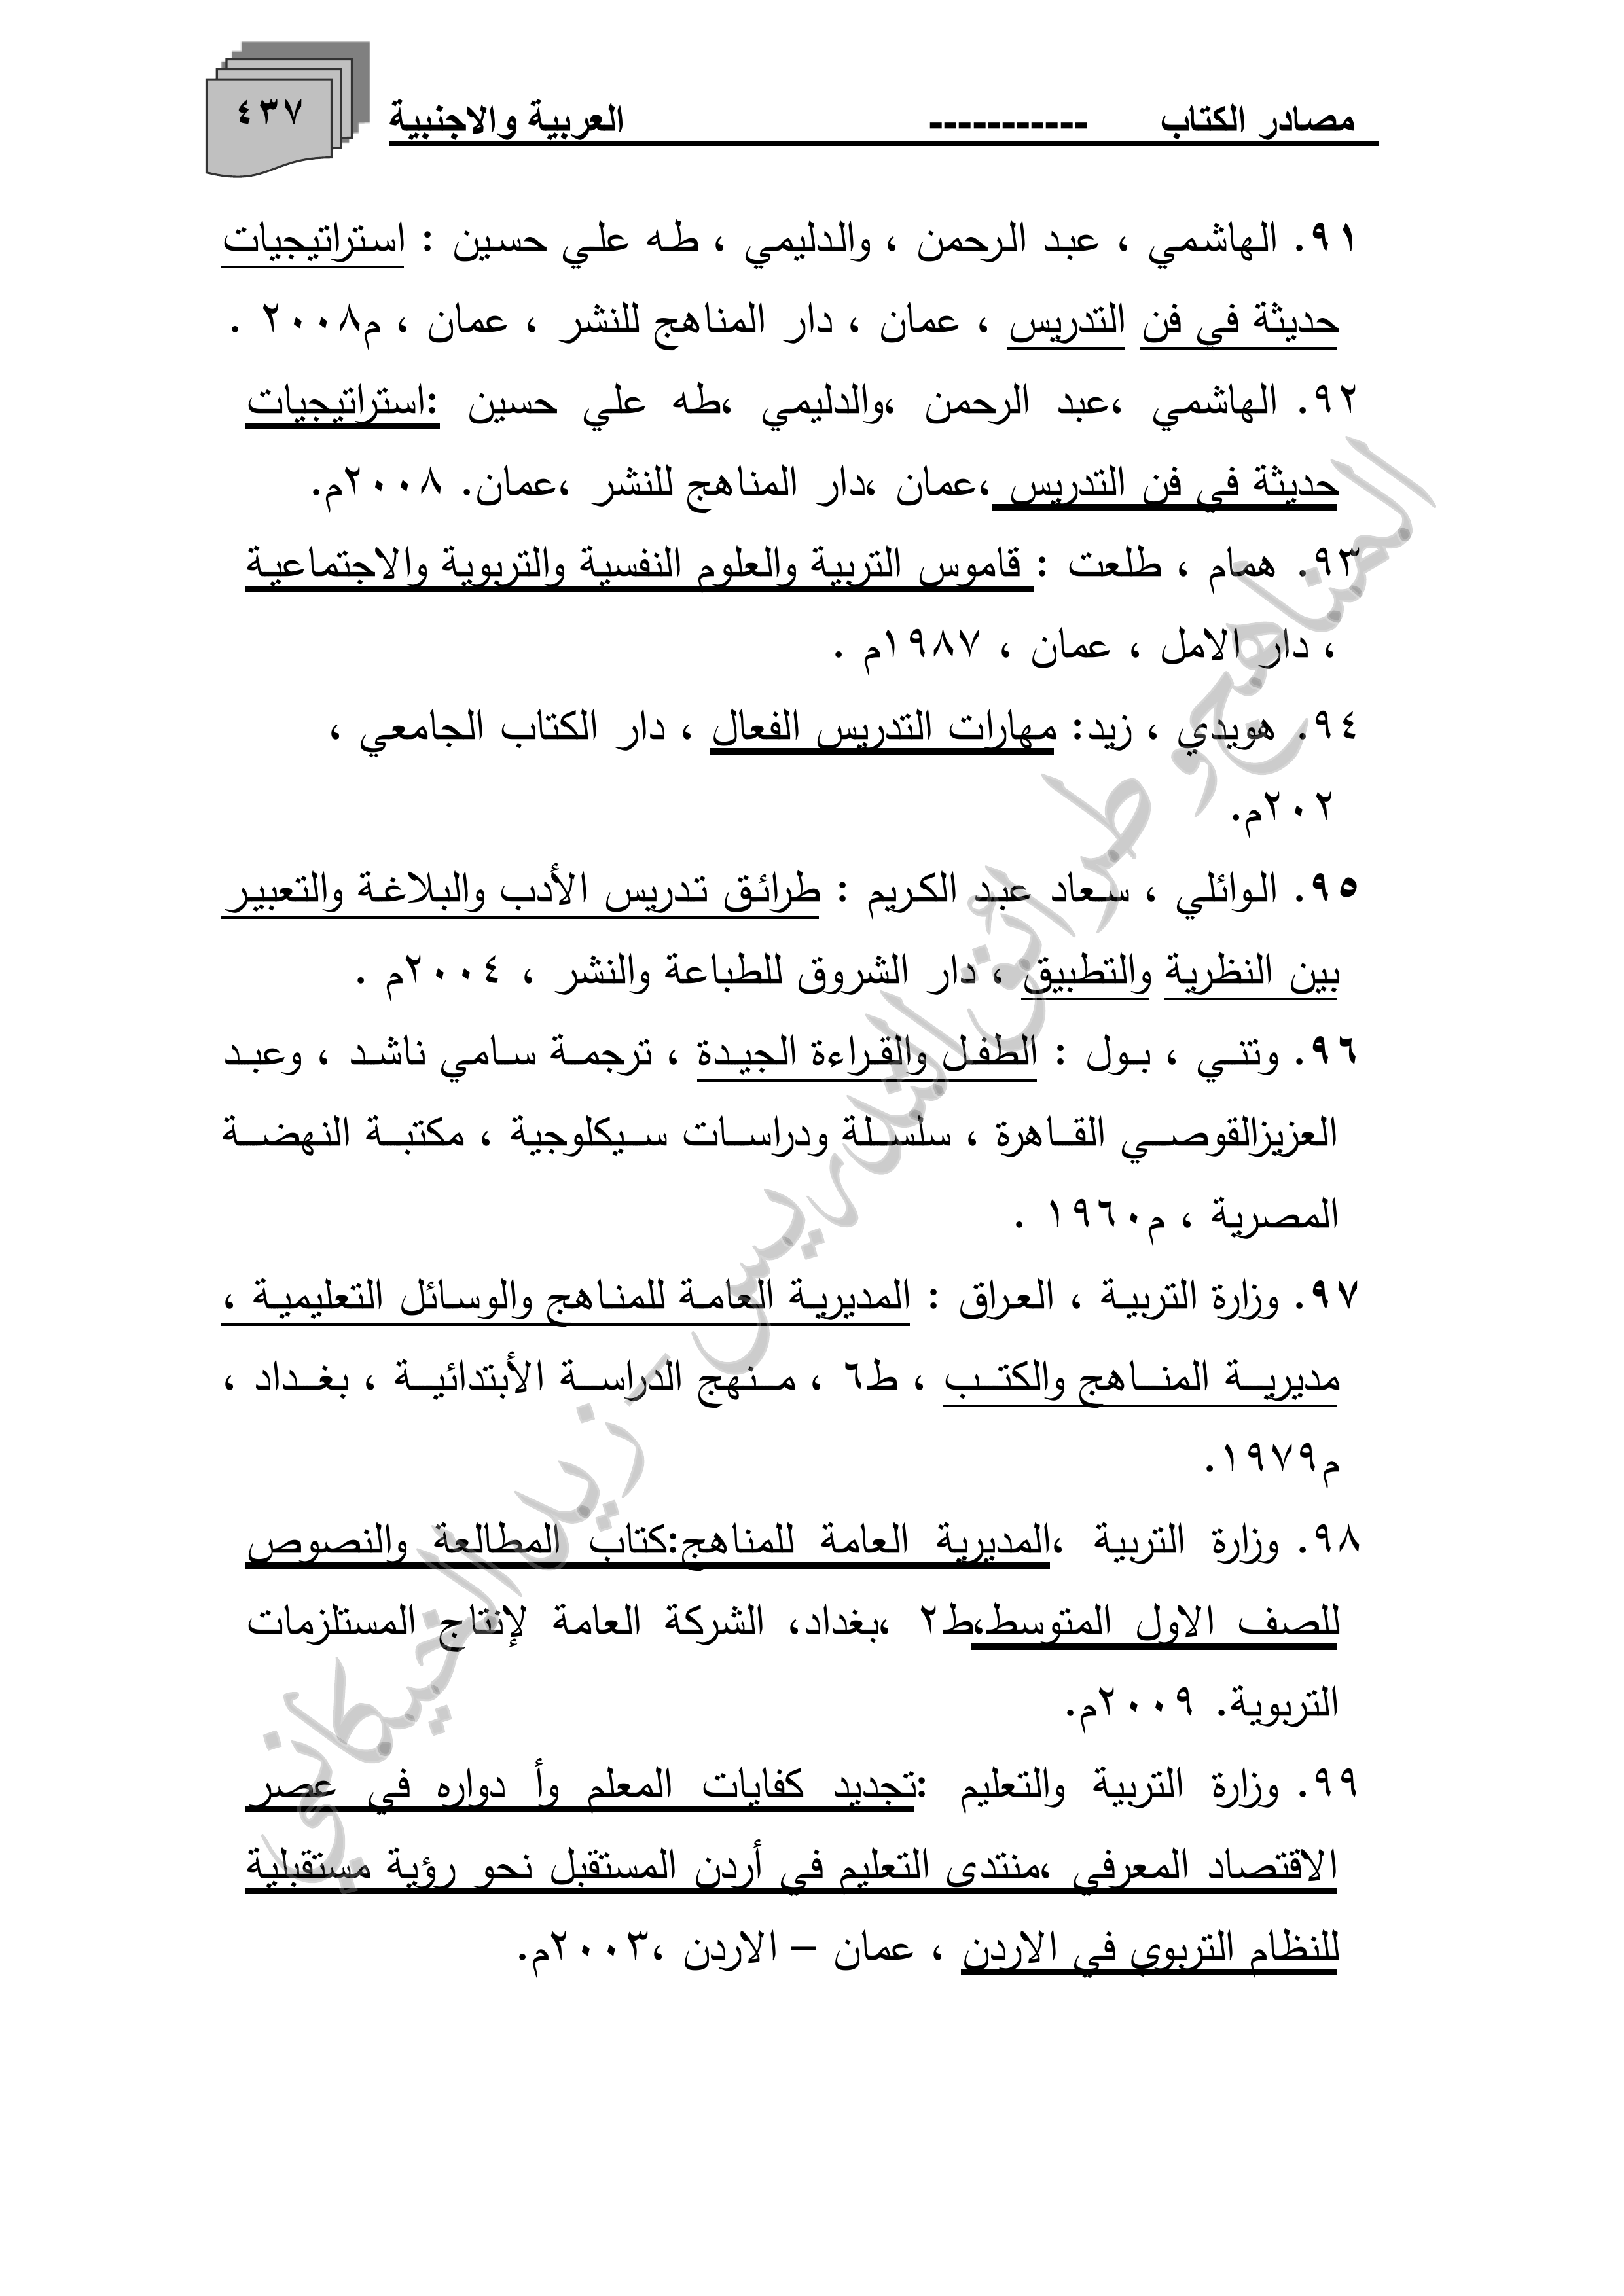 مصادر الكتاب ----------- العربية والاجنبية ٤٣٧
٩١. الهاشمي ، عبد الرحمن ، والدليمي ، طه علي حسين : استراتيجيات
حديثة في فن التدريس ، عمان ، دار المناهج للنشر ، عمان ، م٢٠٠٨ .
٩٢. الهاشمي ،عبد الرحمن ،والدليمي ،طه علي حسين :استراتيجيات
حديثة في فن التدريس ،عمان ،دار المناهج للنشر ،عمان. ٢٠٠٨م.
٩٣. همام ، طلعت : قاموس التربية والعلوم النفسية والتربوية والاجتماعية
، دار الامل ، عمان ، ١٩٨٧م .
٩٤. هويدي ، زيد: مهارات التدريس الفعال ، دار الكتاب الجامعي ،
٢٠٢م.
٩٥. الوائلي ، سعاد عبد الكريم : طرائق تدريس الأدب والبلاغة والتعبير
بين النظرية والتطبيق ، دار الشروق للطباعة والنشر ، ٢٠٠٤م .
٩٦. وتني ، بول : الطفل والقراءة الجيدة ، ترجمة سامي ناشد ، وعبد
العزيزالقوصي القاهرة ، سلسلة ودراسات سيكلوجية ، مكتبة النهضة
المصرية ، م١٩٦٠ .
٩٧. وزارة التربية ، العراق : المديرية العامة للمناهج والوسائل التعليمية ،
مديرية المناهج والكتب ، ط٦ ، منهج الدراسة الأبتدائية ، بغداد ،
م١٩٧٩.
٩٨. وزارة التربية ،المديرية العامة للمناهج:كتاب المطالعة والنصوص
للصف الاول المتوسط،ط٢ ،بغداد، الشركة العامة لإنتاج المستلزمات
التربوية. ٢٠٠٩م.
٩٩. وزارة التربية والتعليم :تجديد كفايات المعلم وأ دواره في عصر
الاقتصاد المعرفي ،منتدى التعليم في أردن المستقبل نحو رؤية مستقبلية
للنظام التربوي في الاردن ، عمان – الاردن ،٢٠٠٣م.
المناهج و طرائق التدريس - زيد الخيكاني